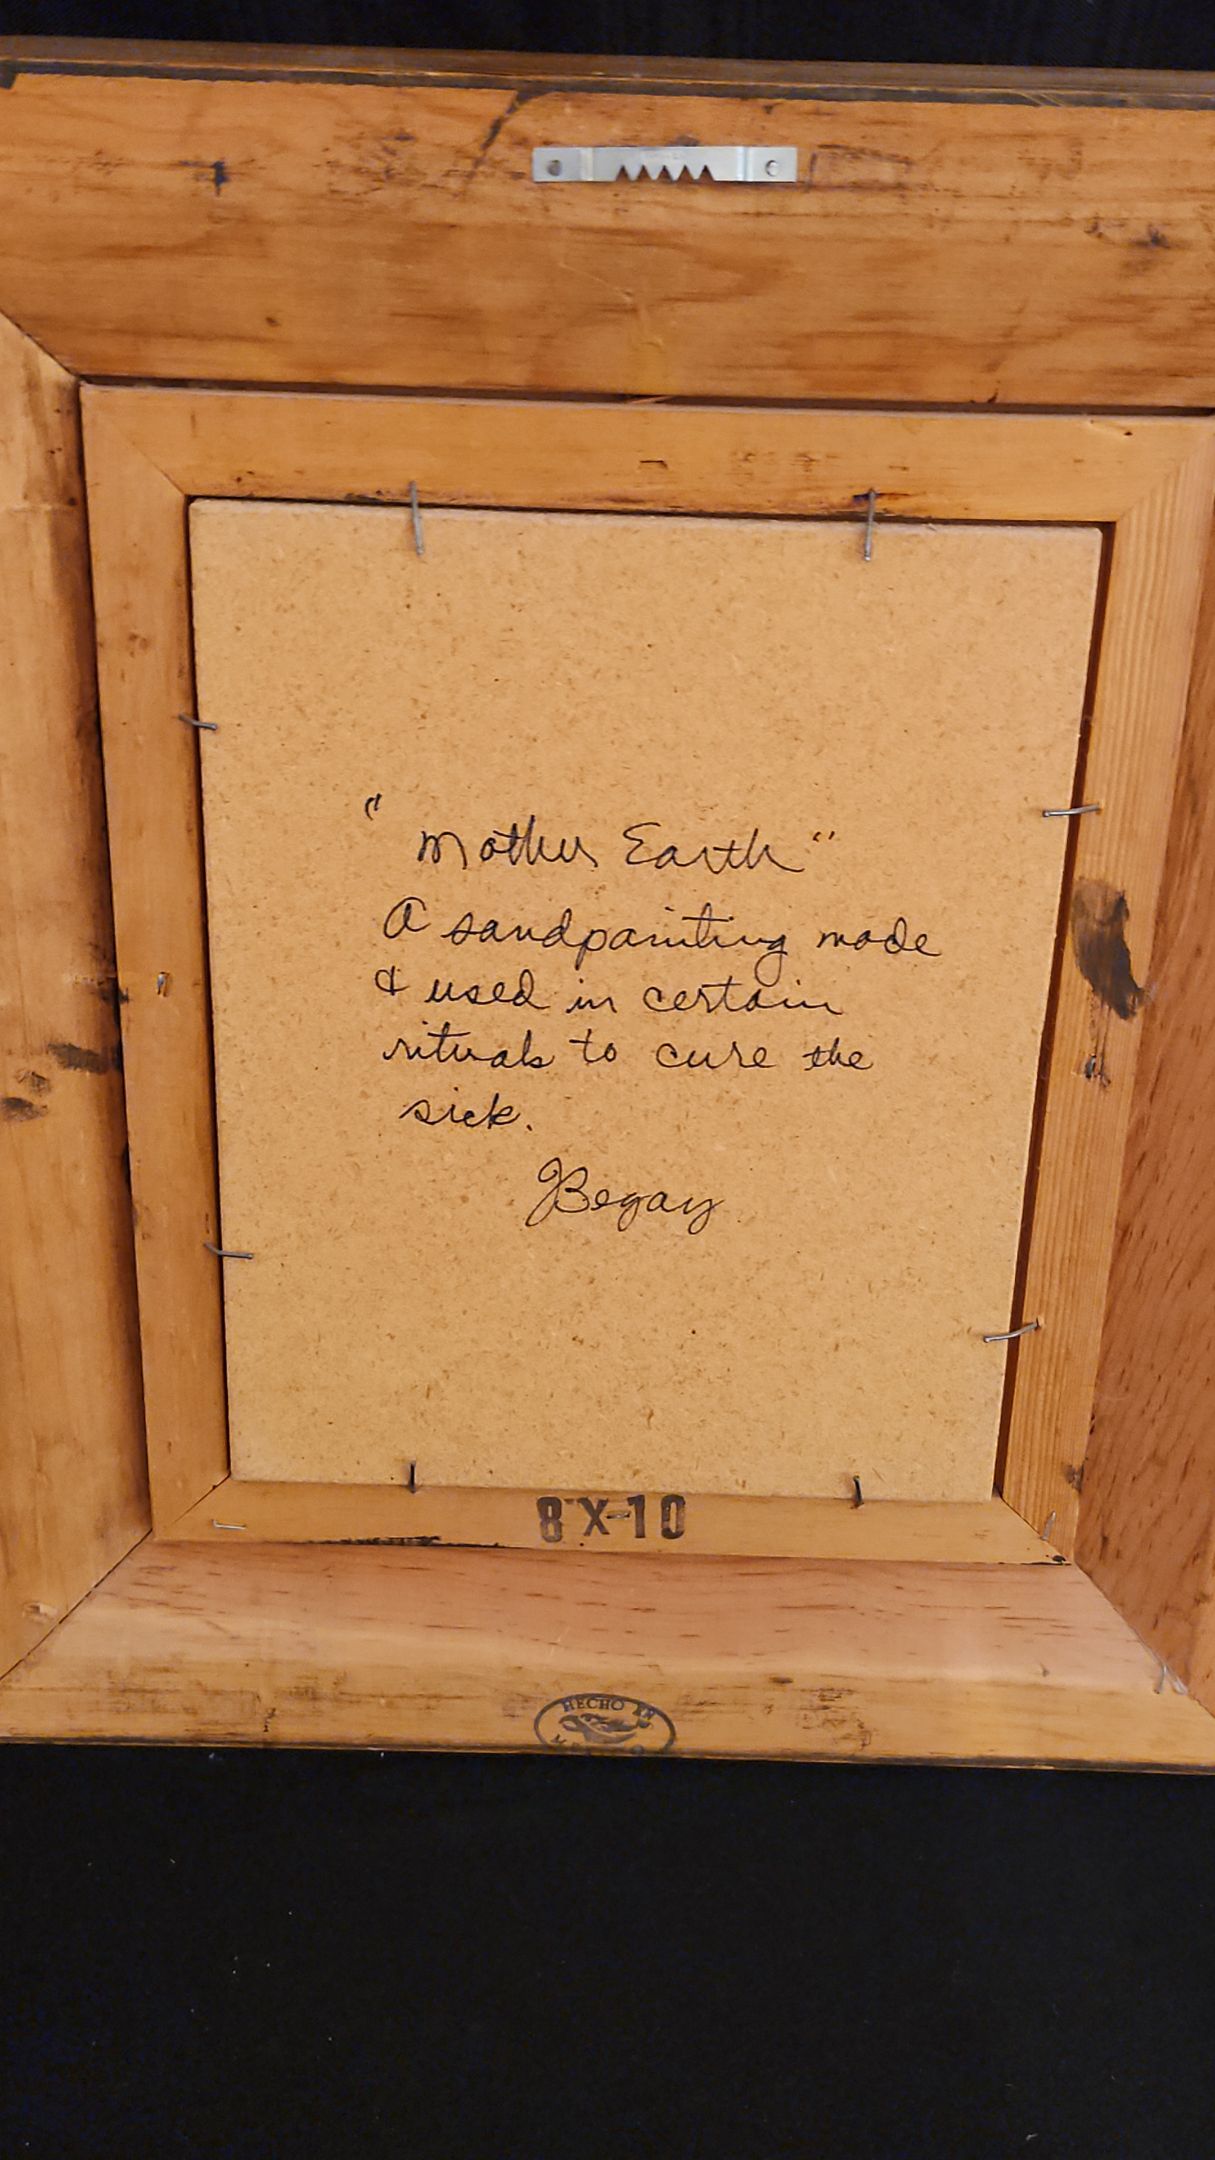 "Mother Earth"
A sandpainting made
& used in certain
rituals to cure the
sick.
JBegay
8 X-10
HECHO EN